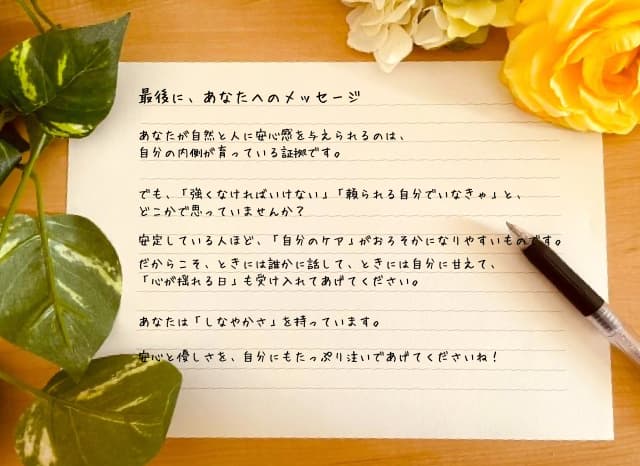 最後に、あなたへのメッセージ
あなたが自然と人に安心感を与えられるのは、
自分の内側が育っている証拠です。
でも、「強くなければいけない」「頼られる自分でいなきゃ」と、
どこかで思っていませんか？
安定している人ほど、「自分のケア」がおろそかになりやすいものです。
だからこそ、ときには誰かに話して、ときには自分に甘えて、
「心が揺れる日」も受け入れてあげてください。
あなたは「しなやかさ」を持っています。
安心と優しさを、自分にもたっぷり注いであげてくださいね！